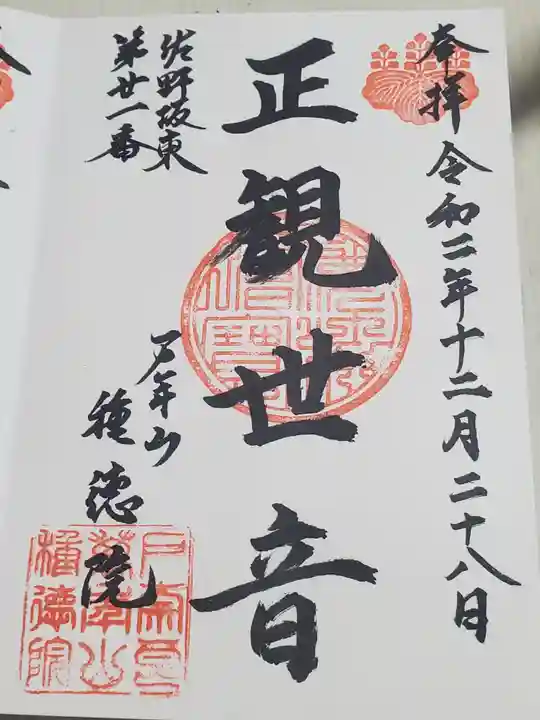 奉拝 令和二年十二月二十八日
正観世音
佐野坂東
第廿一番
戸室山
種徳院
種徳院